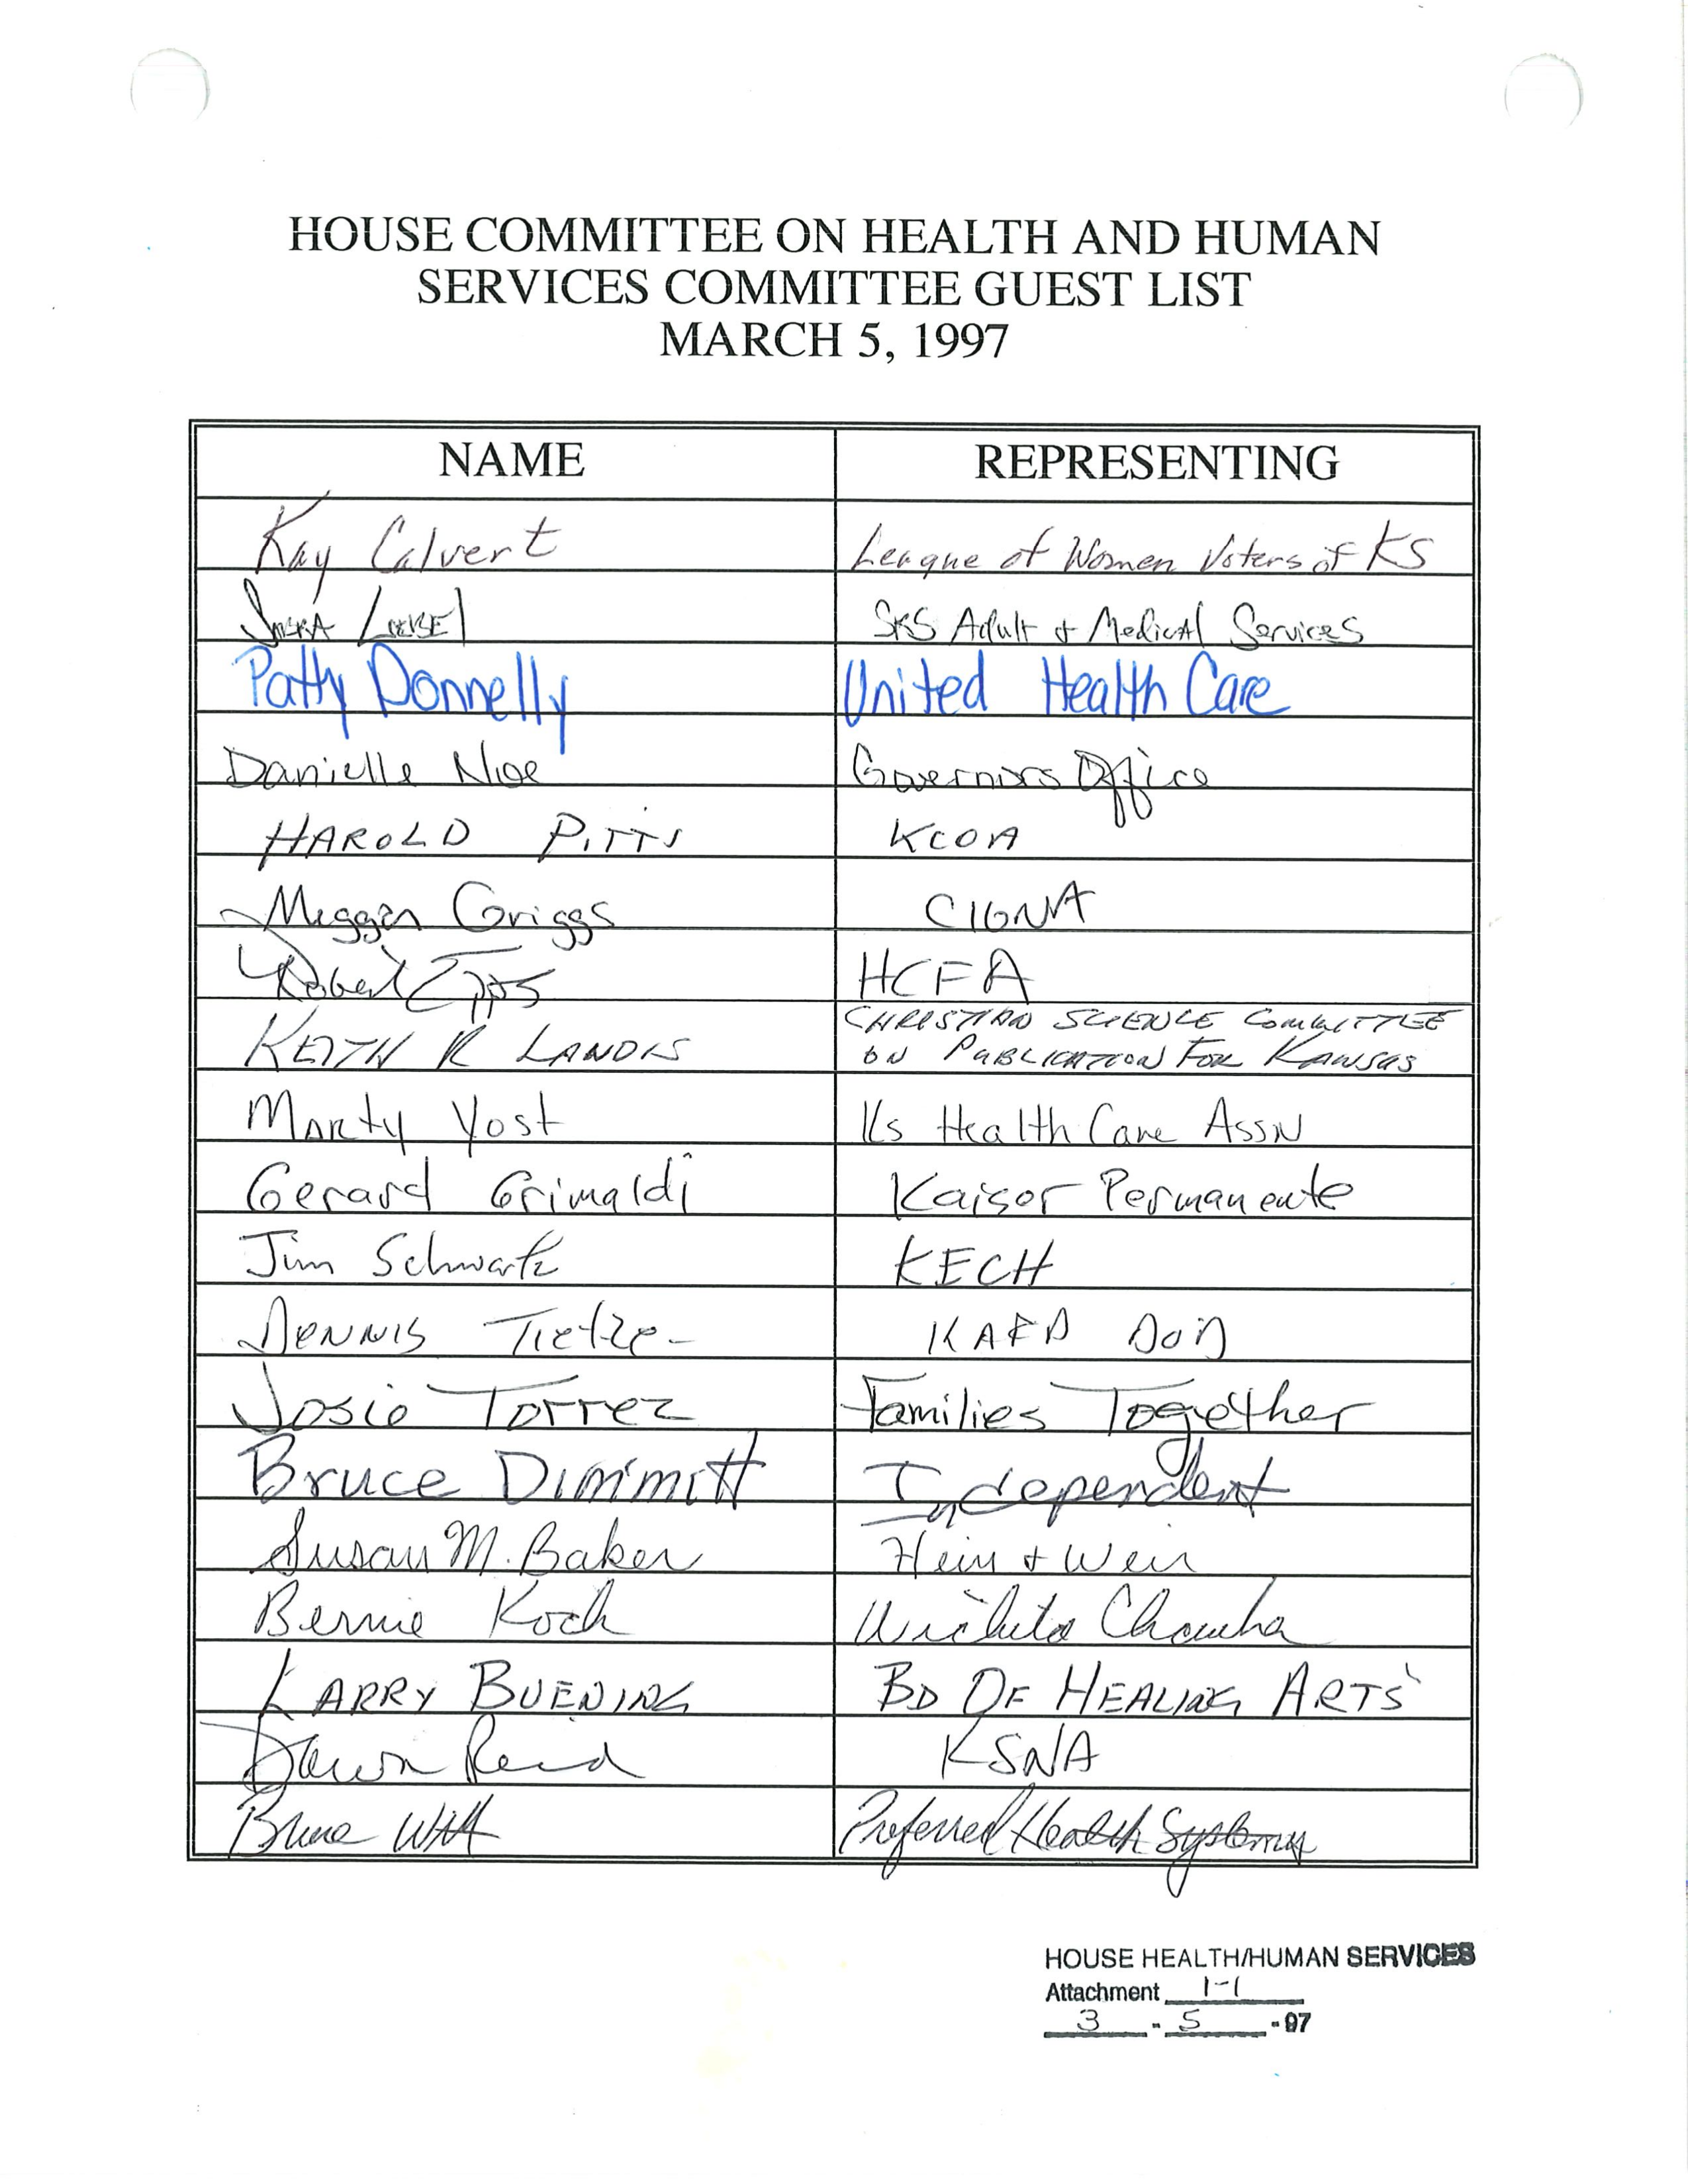 HOUSE COMMITTEE ON HEALTH AND HUMAN
SERVICES COMMITTEE GUEST LIST
MARCH 5, 1997
NAME REPRESENTING
Kay Calvert League of Women Voters of KS
SRS Adult + Medical Services
Patty Donnelly United Health Care
Danielle Noe Governors Office
HAROLD PITTS KCOA
Meggan Griggs CIGNA
Robert Epps HCFA
CHRISTIAN SCIENCE COMMITTEE
KEITH R LANDIS ON PUBLICATION FOR KANSAS
Marty Yost Ks Health Care Assn
Gerard Grimaldi Kaiser Permanente
Jim Schwartz KECH
Dennis Tietze KAFP
Josie Torrez Families Together
Bruce Dimmitt Independent
Susan M. Baker Hein + Weir
Bernie Koch Wichita Chamber
LARRY BUENING BD OF HEALING ARTS
Dawn Reid KSNA
Bruce Witt Preferred Health Systems
HOUSE HEALTH/HUMAN SERVICES
Attachment 1-1
3 - 5 - 97